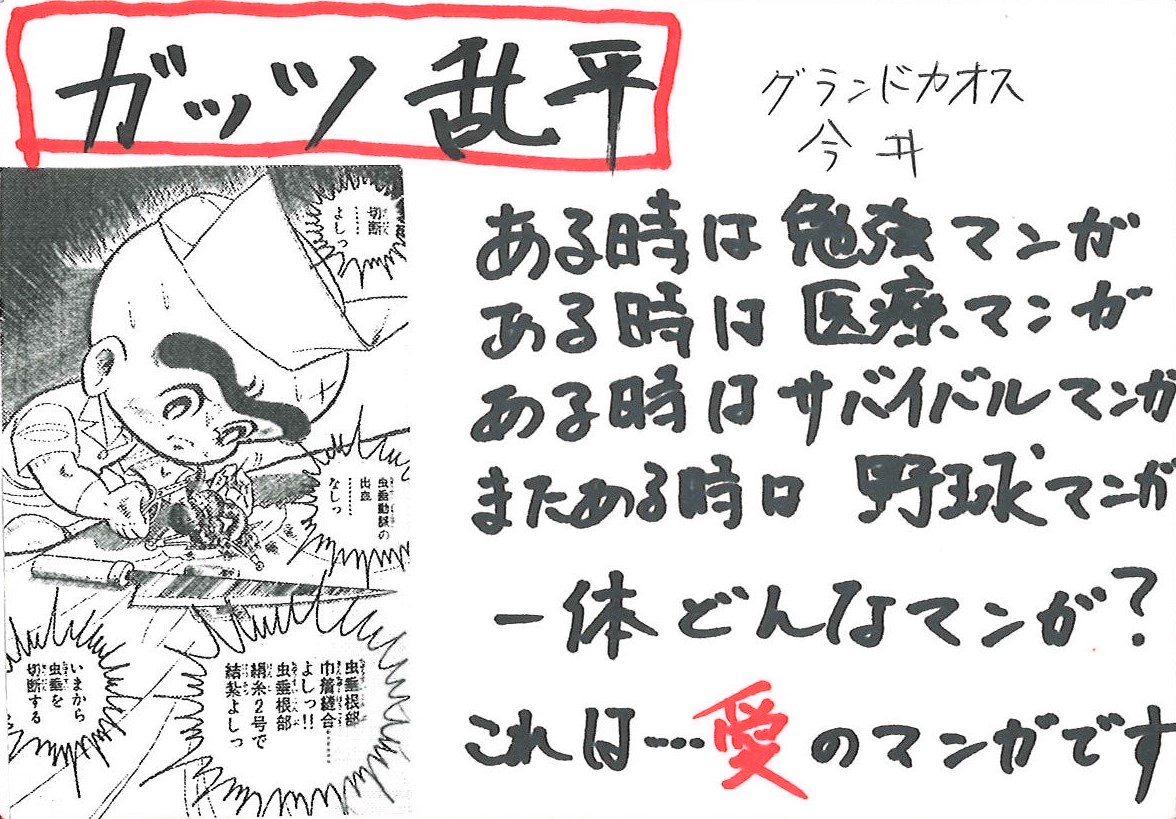 ガッツ乱平
グランドカオス
今井
ある時は勉強マンガ
ある時は医療マンガ
ある時はサバイバルマンガ
またある時は野球マンガ
一体どんなマンガ?
これは…愛のマンガです
切断
……
よしっ
虫垂動脈の
出血
………
なしっ
虫垂根部
巾着縫合……
よしっ!!
虫垂根部
絹糸2号で
結紮よしっ
いまから
虫垂を
切断する